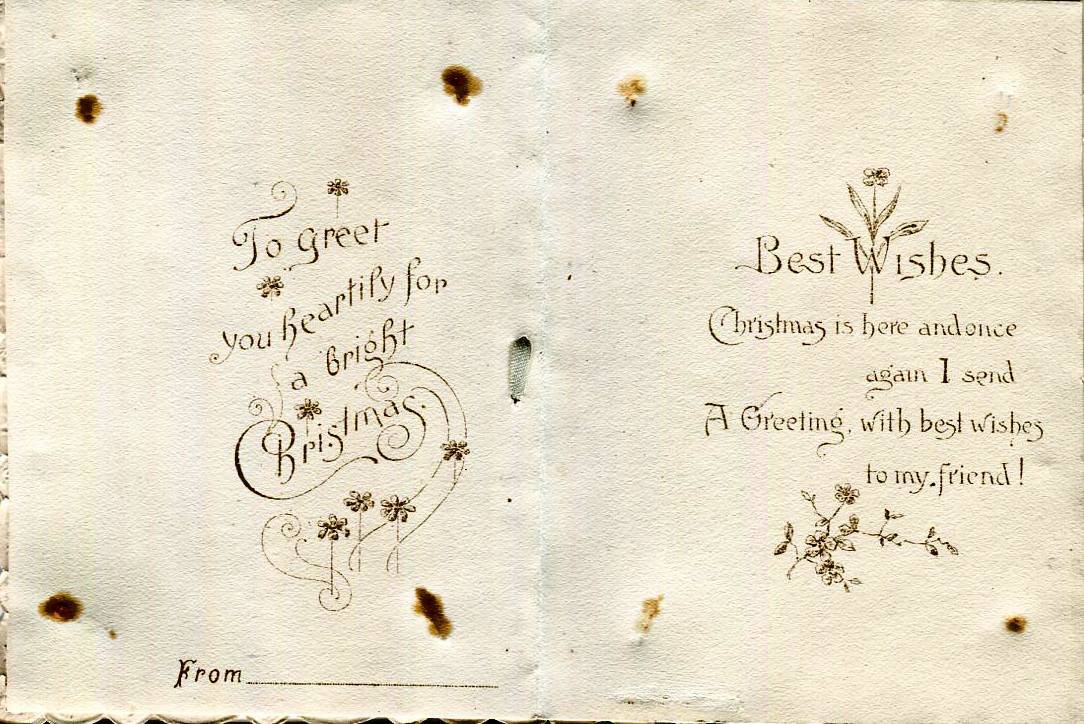 To Greet
you heartily for
a bright
Christmas.
From
Best Wishes.
Christmas is here and once
again I send
A Greeting, with best wishes
to my friend!